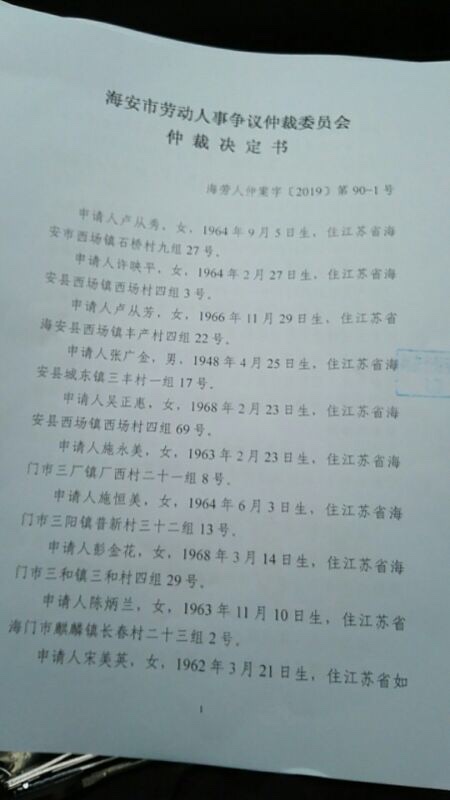 海安市劳动人事争议仲裁委员会
仲裁决定书
海劳人仲案字〔2019〕第90-1号
申请人卢从秀，女，1964年9月5日生，住江苏省海
安市西场镇石桥村九组27号。
申请人许映平，女，1964年2月27日生，住江苏省海
安县西场镇西场村四组3号。
申请人卢从芳，女，1966年11月29日生，住江苏省
海安县西场镇丰产村四组22号。
申请人张广金，男，1948年4月25日生，住江苏省海
安县城东镇三丰村一组17号。
申请人吴正惠，女，1968年2月23日生，住江苏省海
安县西场镇西场村四组69号。
申请人施永美，女，1963年2月23日生，住江苏省海
门市三厂镇厂西村二十一组8号。
申请人施恒美，女，1964年6月3日生，住江苏省海
门市三阳镇普新村三十二组13号。
申请人彭金花，女，1968年3月14日生，住江苏省海
门市三和镇三和村四组29号。
申请人陈炳兰，女，1963年11月10日生，住江苏省
海门市麒麟镇长春村二十三组2号。
申请人宋美英，女，1962年3月21日生，住江苏省如
1